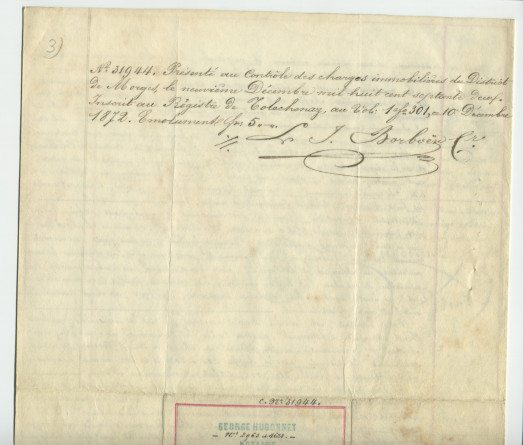 3)
N° 31944. Présenté au Contrôle des charges immobilières du District
de Morges, le neuvième Décembre mil huit cent septante deux.
Inscrit au Régistre de Tolochenaz, au Vol: 1 f° 301, le 10 Décembre
1872. Emolument fr 5
J. Borboën
C. N° 31944.
GEORGE HUGONNET
NOTAIRE